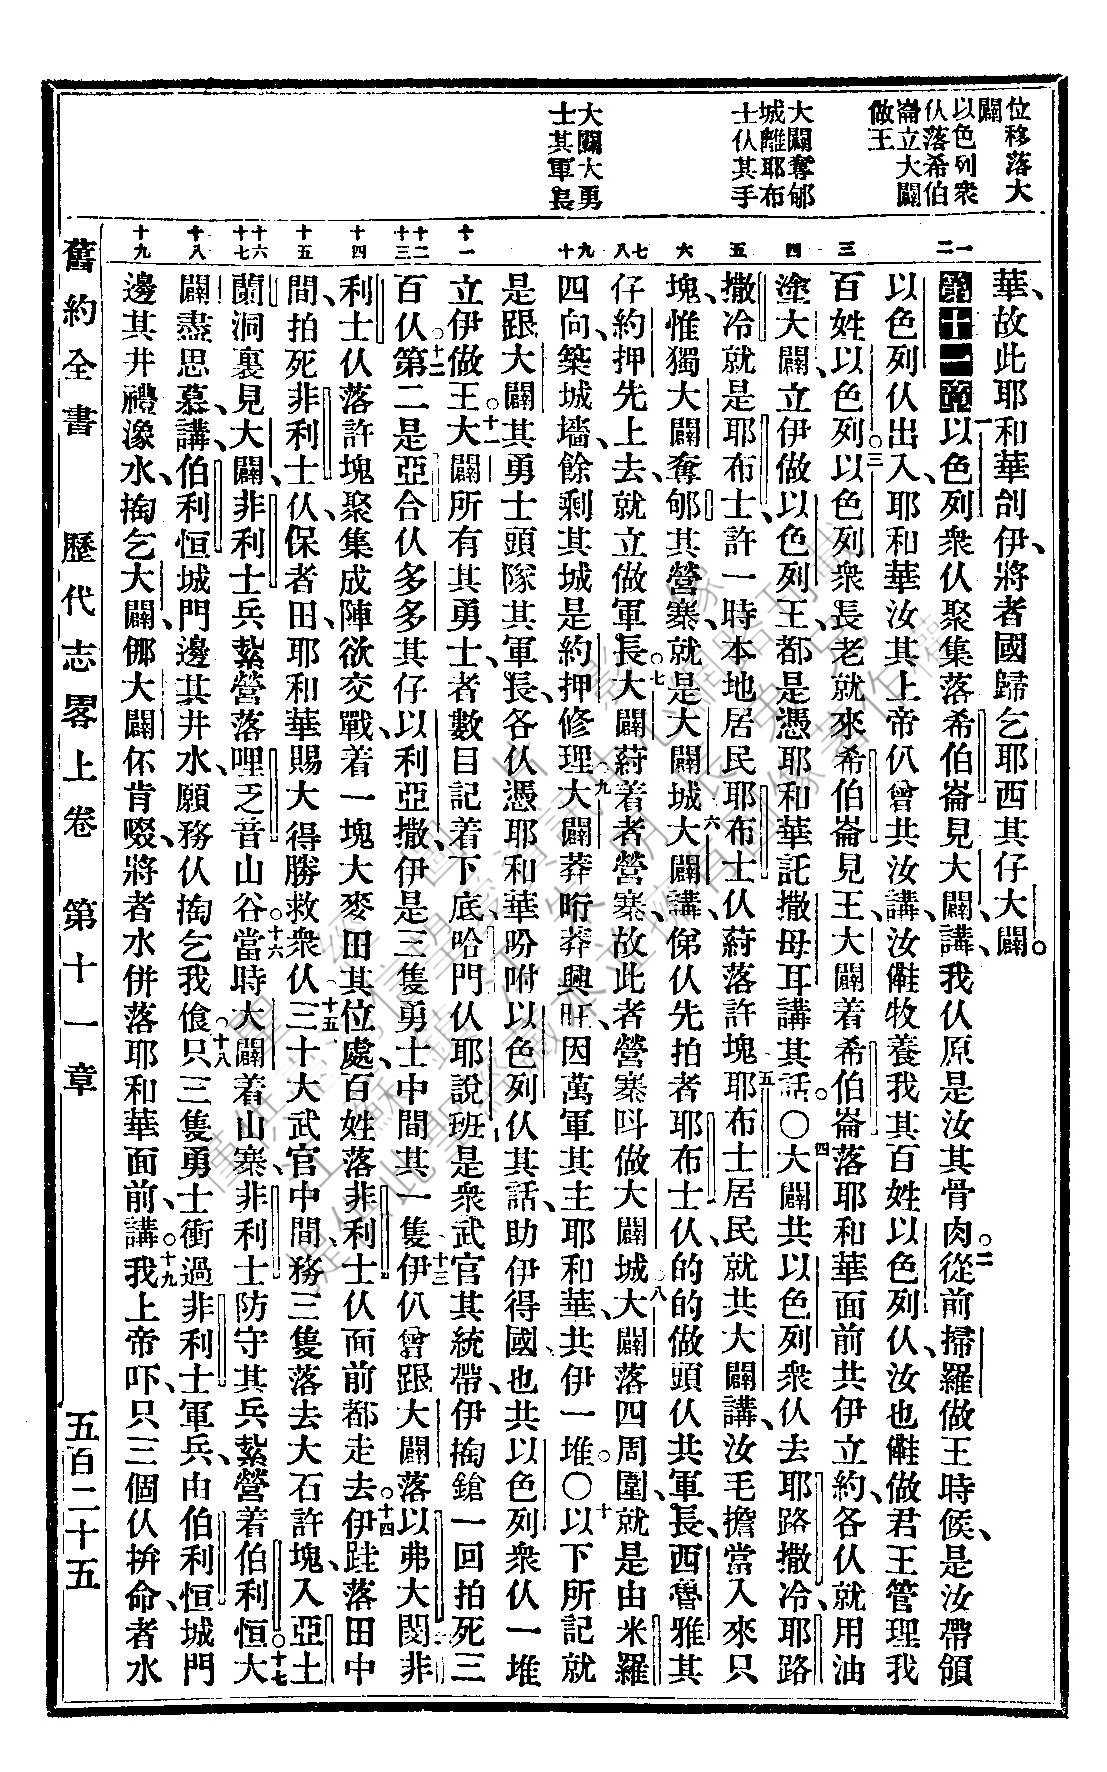 位移落大
闢
以色列衆
仈落希伯
崙立大闢
做王
大闢奪𨚫
城離耶布
士仈其手
大闢大勇
士其軍長
一
二
三
四
五
六
七
八
九
十
十一
十二
十三
十四
十五
十六
十七
十八
十九
華、故此耶和華刣伊、將者國歸乞耶西其仔大闢。
第十一章 以色列衆仈聚集落希伯崙見大闢、講、我仈原是汝其骨肉。二從前掃羅做王時候、是汝帶領
以色列仈出入、耶和華汝其上帝仈曾共汝講、汝㑚牧養我其百姓以色列仈、汝也㑚做君王管理我
百姓以色列。三以色列衆長老就來希伯崙見王、大闢着希伯崙落耶和華面前共伊立約、各仈就用油
塗大闢、立伊做以色列王、都是憑耶和華託撒母耳講其話。○四大闢共以色列衆仈去耶路撒冷、耶路
撒冷就是耶布士、許一時本地居民耶布士仈蒞落許塊。五耶布士居民就共大闢講、汝毛擔當入來只
塊、惟獨大闢奪𨚫其營寨、就是大闢城。六大闢講、俤仈先拍者耶布士仈的的做頭仈共軍長、西魯雅其
仔約押先上去、就立做軍長。七大闢蒞着者營寨、故此者營寨呌做大闢城。八大闢落四周圍、就是由米羅
四向、築城墻、餘剩其城是約押修理。九大闢莽𣍐莽興旺、因萬軍其主耶和華、共伊一堆。○十以下所記就
是跟大闢其勇士頭隊其軍長、各仈憑耶和華吩咐以色列仈其話、助伊得國、也共以色列衆仈一堆
立伊做王。十一大闢所有其勇士、者數目記着下底、哈門仈耶說班是衆武官其統帶、伊掏鎗一回拍死三
百仈。十二第二是亞合仈多多其仔以利亞撒、伊是三隻勇士中間其一隻。十三伊仈曾跟大闢落以弗大閔、非
利士仈落許塊聚集成陣欲交戰、着一塊大麥田其位處、百姓落非利士仈面前都走去。十四伊跬落田中
間、拍死非利士仈、保者田、耶和華賜大得勝救衆仈。十五三十大武官中間、務三隻落去大石許塊、入亞土
蘭洞裏見大闢、非利士兵紥營落哩乏音山谷。十六當時大闢着山寨、非利士防守其兵紥營着伯利恒。十七大
闢盡思慕、講、伯利恒城門邊其井水、願務仈掏乞我飡。十八只三隻勇士衝過非利士軍兵、由伯利恒城門
邊其井禮潒水、掏乞大闢、㑚大闢伓肯啜、將者水併落耶和華面前、講。十九我上帝吓、只三個仈拚命、者水
舊約全書 歷代志畧上卷 第十一章 五百二十五